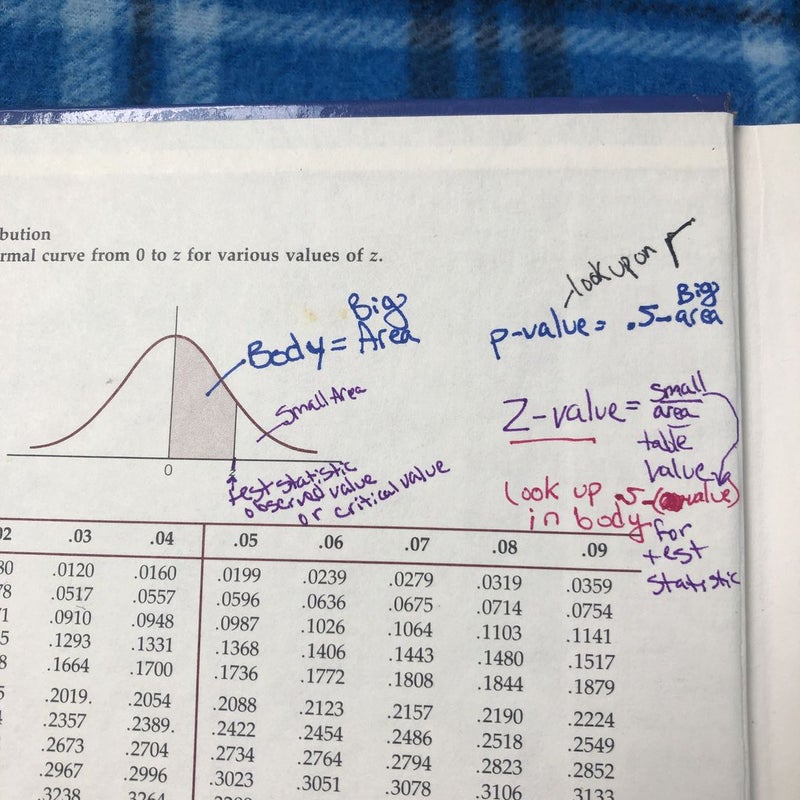 bution
rmal curve from 0 to z for various values of z.
lookup on
Big
Body = Area
Big
p-value = .5-area
Small Area
Z-value = small
area
table
value
0
test statistic
observed value
or critical value
look up .5-( value)
in body for
test
statistic
02 .03 .04 .05 .06 .07 .08 .09
80 .0120 .0160 .0199 .0239 .0279 .0319 .0359
78 .0517 .0557 .0596 .0636 .0675 .0714 .0754
71 .0910 .0948 .0987 .1026 .1064 .1103 .1141
5 .1293 .1331 .1368 .1406 .1443 .1480 .1517
8 .1664 .1700 .1736 .1772 .1808 .1844 .1879
5 .2019. .2054 .2088 .2123 .2157 .2190 .2224
.2357 .2389. .2422 .2454 .2486 .2518 .2549
.2673 .2704 .2734 .2764 .2794 .2823 .2852
.2967 .2996 .3023 .3051 .3078 .3106 .3133
.3238 .3264